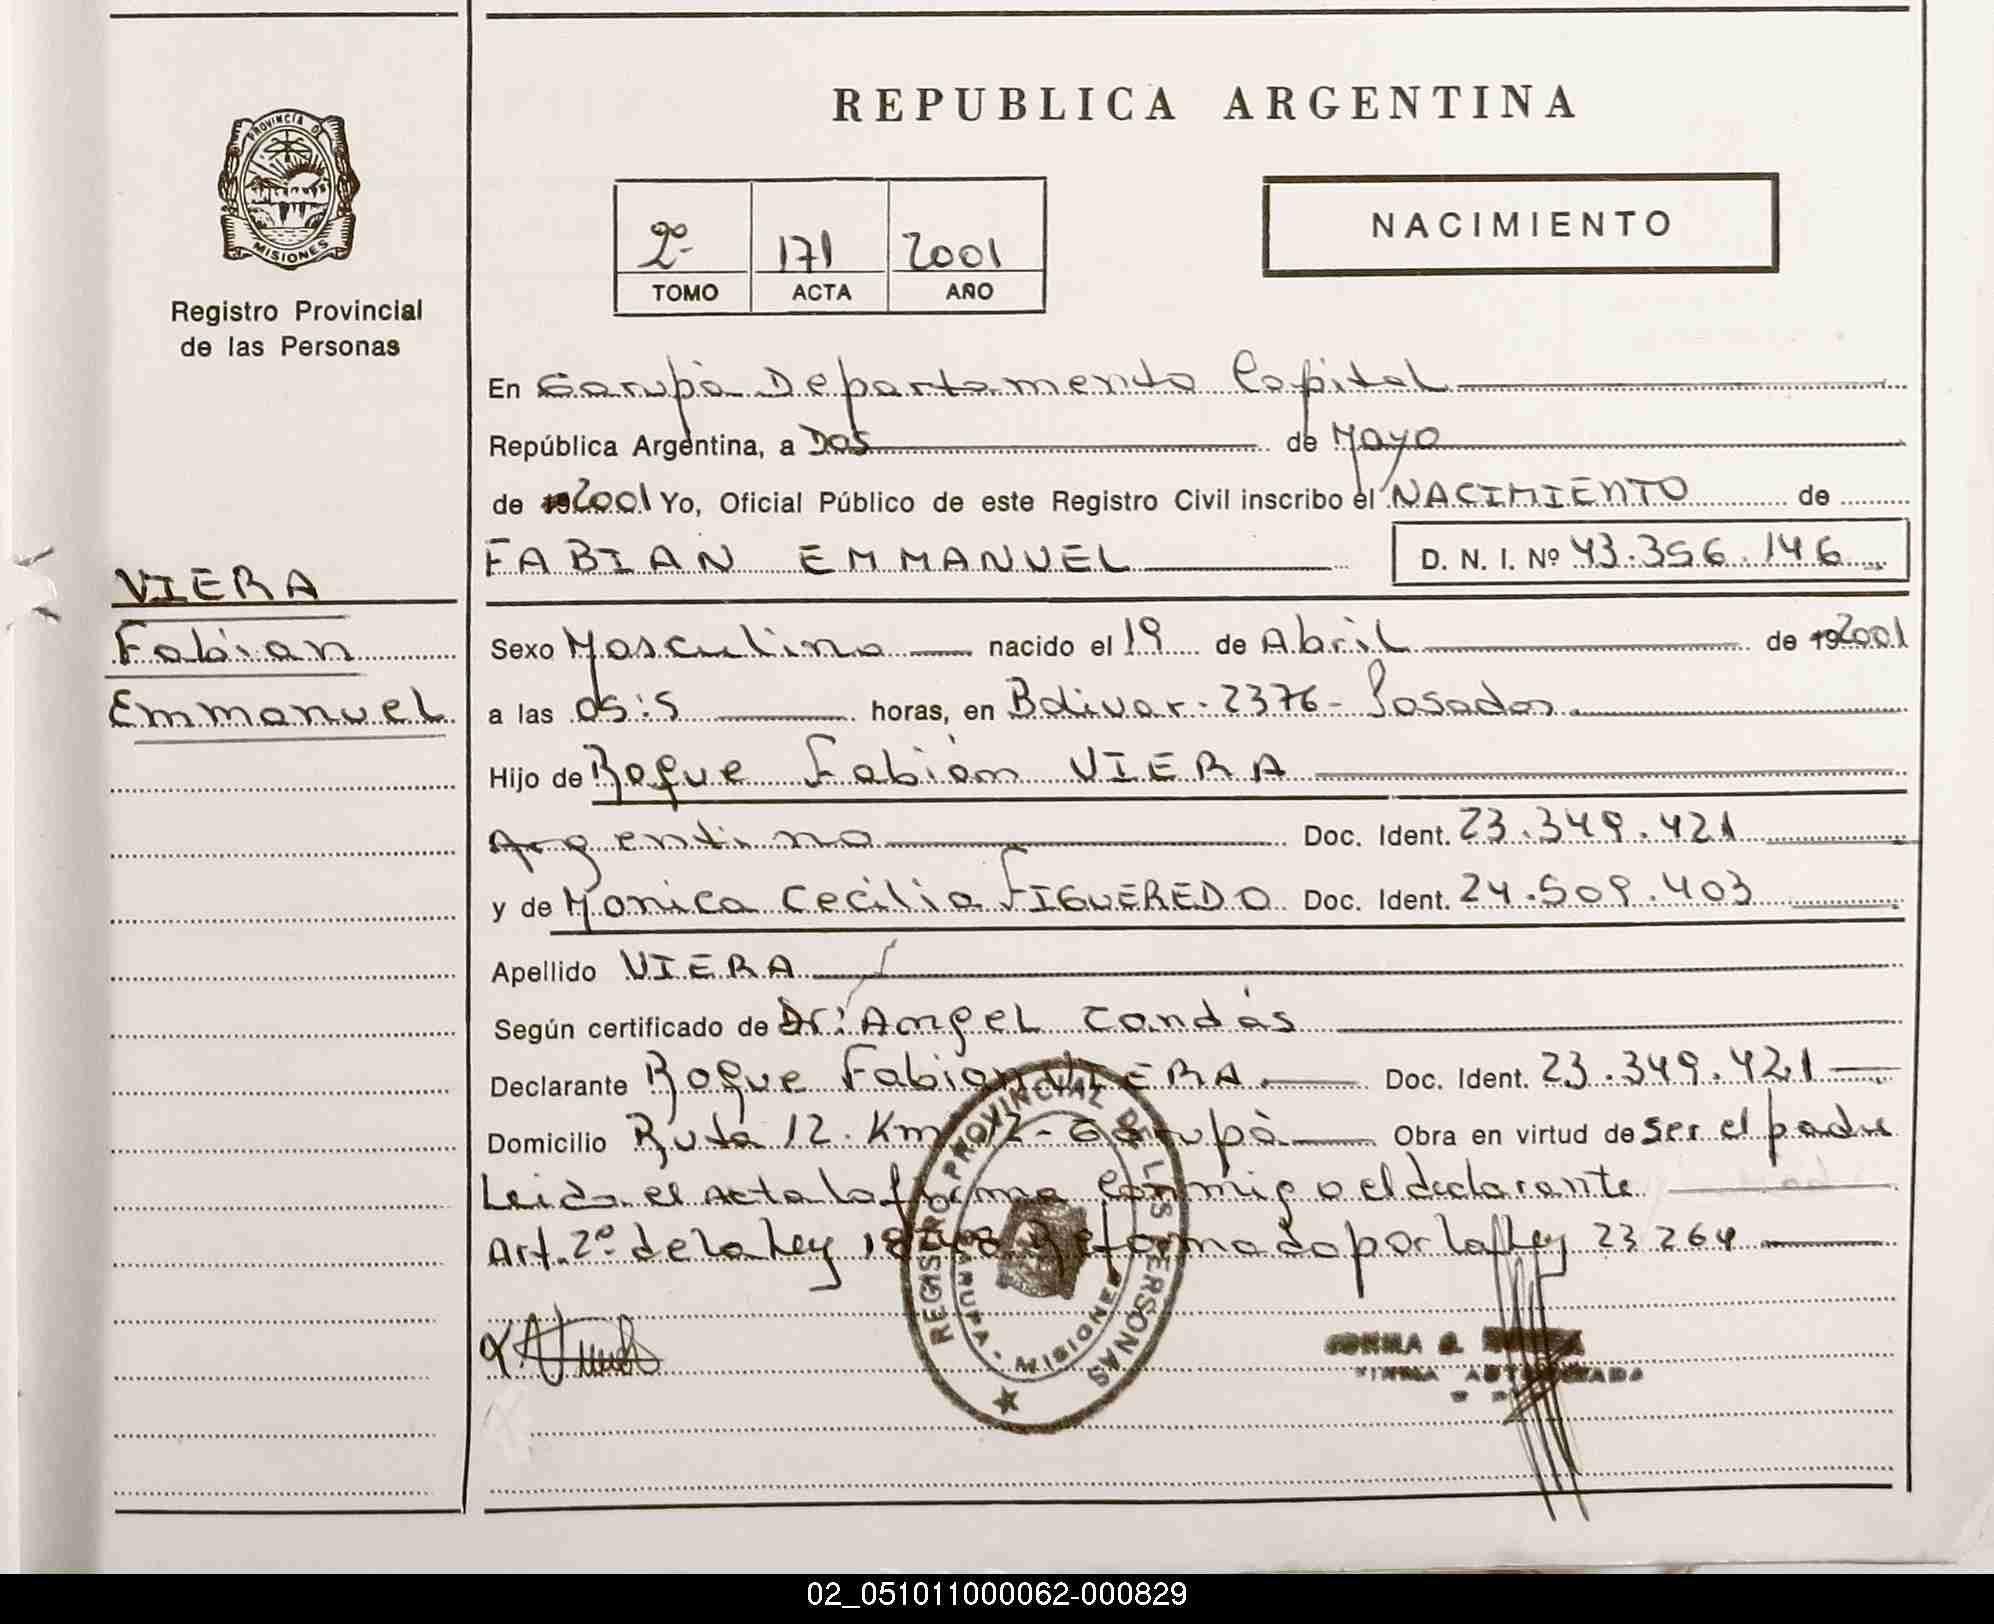 REPUBLICA ARGENTINA
PROVINCIA D
MISIONES
Registro Provincial
de las Personas
2º
171
2001
TOMO
ACTA
AÑO
NACIMIENTO
En Garupá Departamento Capital
República Argentina, a Dos de Mayo
de 192001 Yo, Oficial Público de este Registro Civil inscribo el NACIMIENTO de
FABIAN EMMANUEL D. N. I. Nº 43.356.146
VIERA
Fabian
Emmanuel
Sexo Masculino nacido el 19 de Abril de 192001
a las 05:5 horas, en Bolivar - 2376 - Posadas
Hijo de Roque Fabián VIERA
Argentino Doc. Ident. 23.349.421
y de Monica Cecilia FIGUEREDO Doc. Ident. 24.509.403
Apellido VIERA
Según certificado de Dr: Angel Candás
Declarante Roque Fabian VIERA Doc. Ident. 23.349.421
Domicilio Ruta 12 Km 12 - Garupá Obra en virtud de ser el padre
Leida el Acta la firma conmigo el declarante
Art. 2º de la Ley 18248 Reformado por la Ley 23264
REGISTRO PROVINCIAL DE LAS PERSONAS
GARUPA - MISIONES
FIRMA AUTORIZADA
02_051011000062-000829